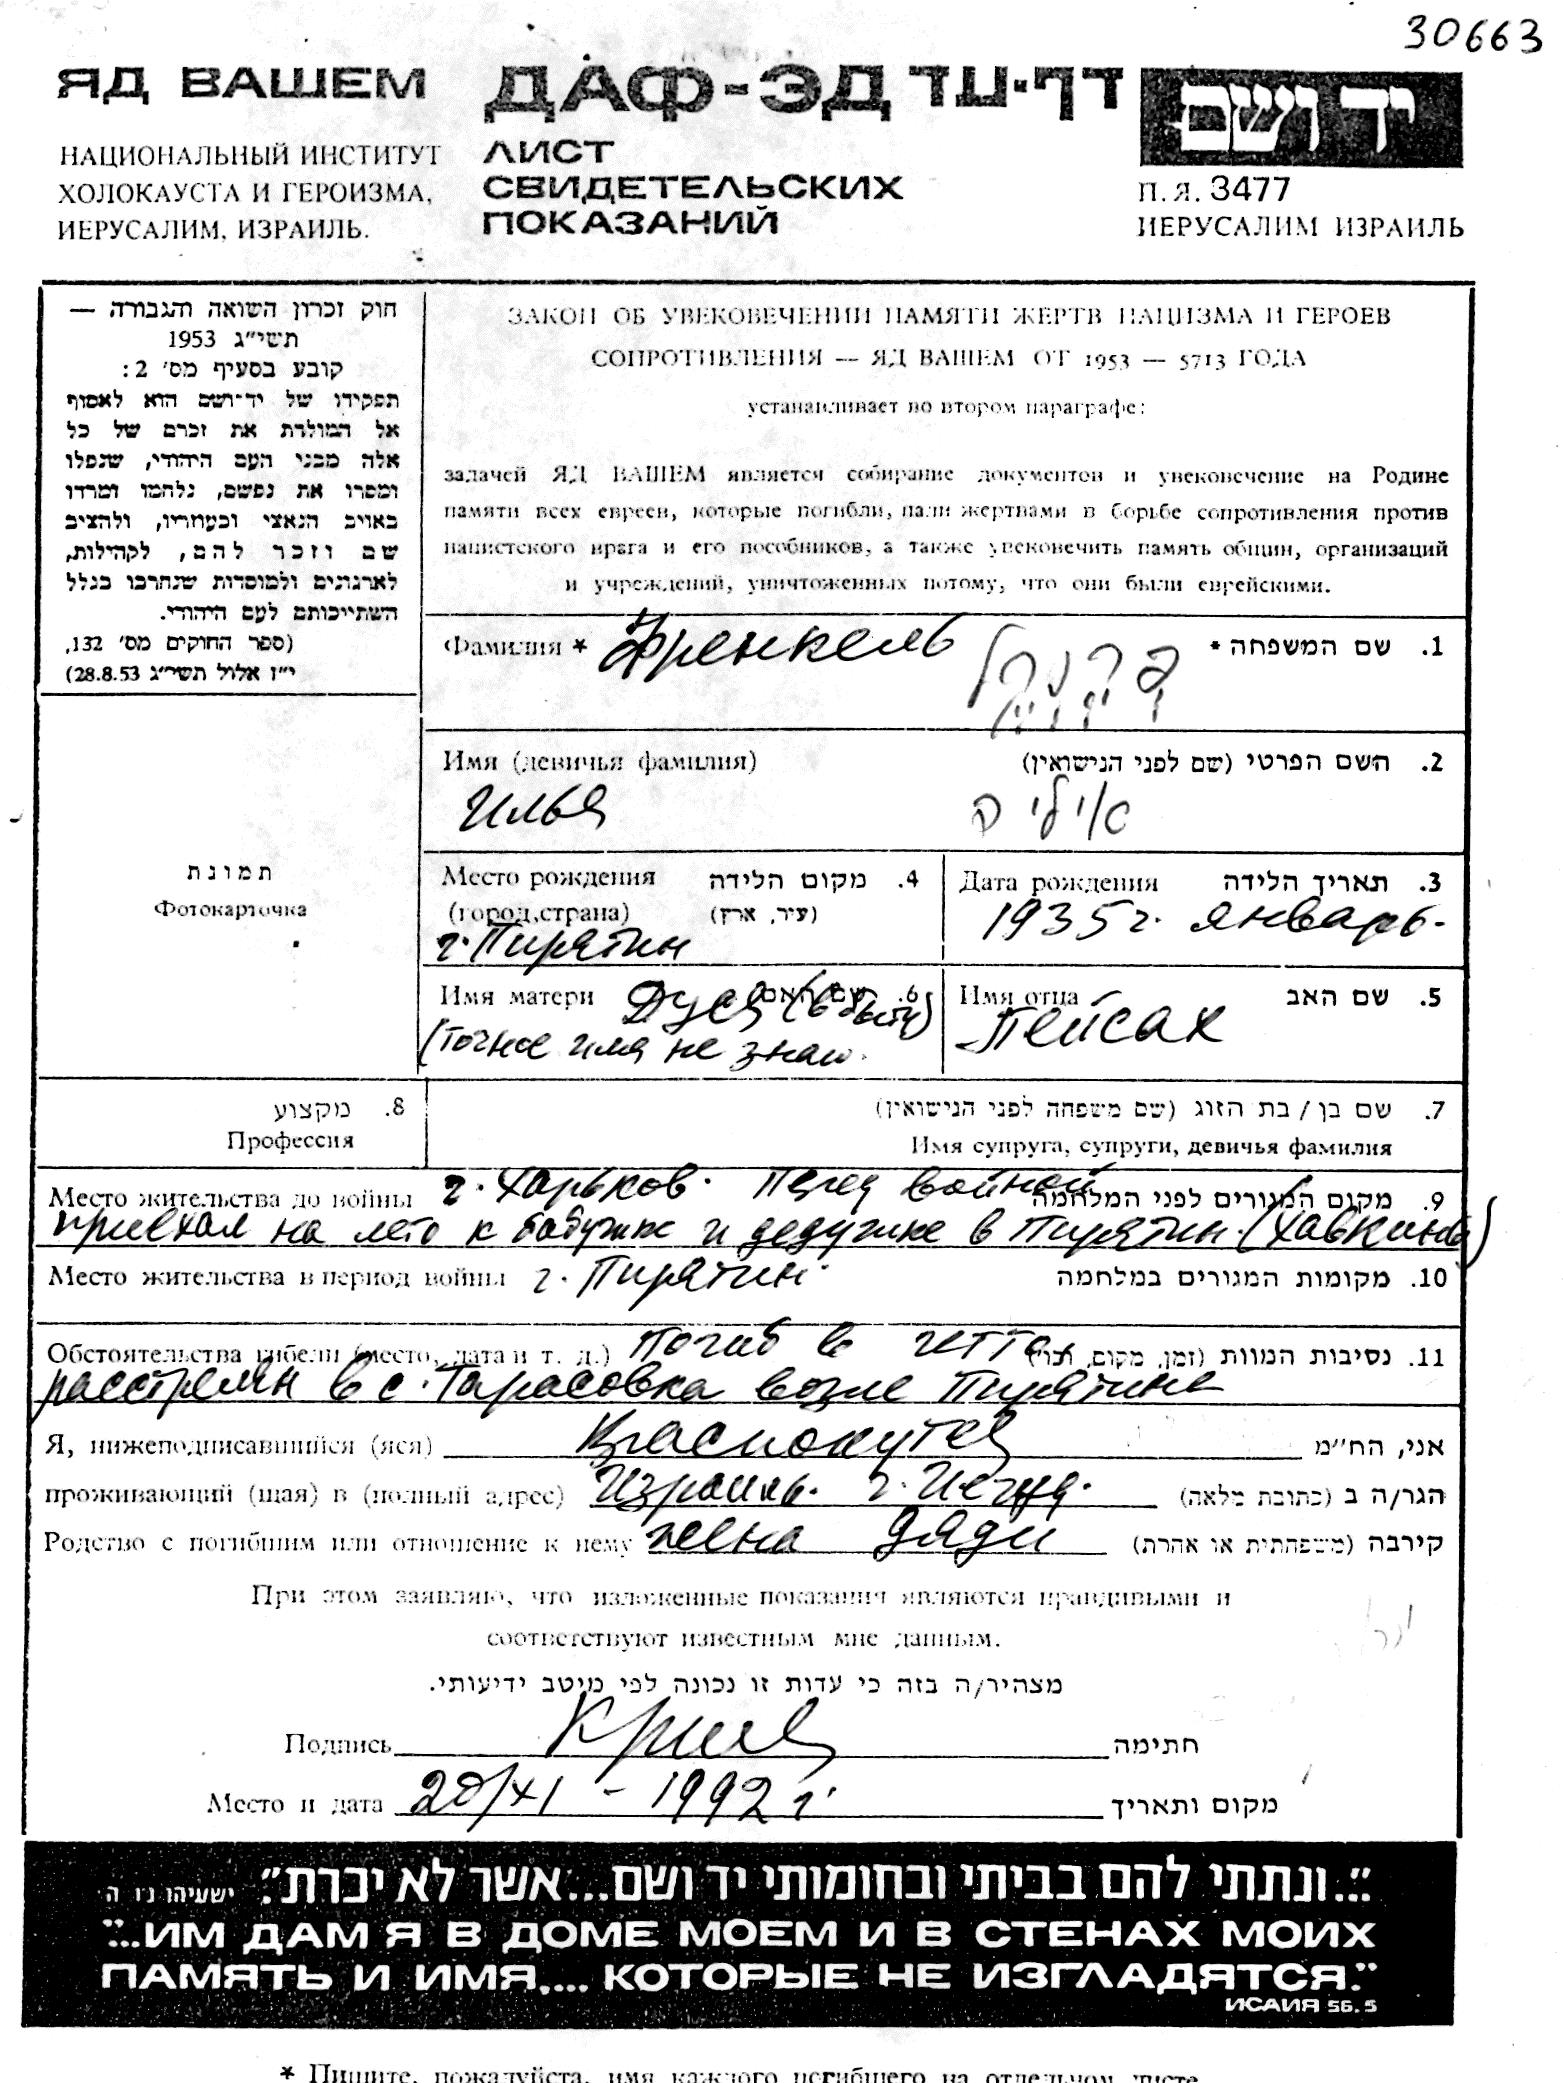 30663
ЯД ВАШЕМ ДАФ-ЭД דף-עד יד ושם
НАЦИОНАЛЬНЫЙ ИНСТИТУТ
ХОЛОКАУСТА И ГЕРОИЗМА,
ИЕРУСАЛИМ, ИЗРАИЛЬ.
ЛИСТ
СВИДЕТЕЛЬСКИХ
ПОКАЗАНИЙ
П. Я. 3477
ИЕРУСАЛИМ ИЗРАИЛЬ
חוק זכרון השואה והגבורה —
תשי״ג 1953
קובע בסעיף מס׳ 2:
תפקידו של יד־ושם הוא לאסוף
אל המולדת את זכרם של כל
אלה מבני העם היהודי, שנפלו
ומסרו את נפשם, נלחמו ומרדו
באויב הנאצי ובעוזריו, ולהציב
שם וזכר להם, לקהילות,
לארגונים ולמוסדות שנחרבו בגלל
השתייכותם לעם היהודי.
(ספר החוקים מס׳ 132,
י״ז אלול תשי״ג 28.8.53)
ЗАКОН ОБ УВЕКОВЕЧЕНИИ ПАМЯТИ ЖЕРТВ НАЦИЗМА И ГЕРОЕВ
СОПРОТИВЛЕНИЯ — ЯД ВАШЕМ ОТ 1953 — 5713 ГОДА
устанавливает во втором параграфе:
задачей ЯД ВАШЕМ является собирание документов и увековечение на Родине
памяти всех евреев, которые погибли, пали жертвами в борьбе сопротивления против
нацистского врага и его пособников, а также увековечить память общин, организаций
и учреждений, уничтоженных потому, что они были еврейскими.
Фамилия * Френкель פרנקל 1. שם המשפחה *
Имя (девичья фамилия) 2. השם הפרטי (שם לפני הנישואין)
Илья איליה
תמונת
Фотокарточка
Место рождения 4. מקום הלידה
(город,страна) (עיר, ארץ)
г. Пирятин
Дата рождения 3. תאריך הלידה
1935 г. январь.
Имя матери 6. שם האם Дуся (в быту)
(точное имя не знаю.
Имя отца 5. שם האב
Пейсах
8. מקצוע
Профессия
7. שם בן / בת הזוג (שם משפחה לפני הנישואין)
Имя супруга, супруги, девичья фамилия
Место жительства до войны г. Харьков. Перед войной 9. מקום המגורים לפני המלחמה
приехал на лето к бабушке и дедушке в Пирятин. (Хавкины)
Место жительства в период войны г. Пирятин. 10. מקומות המגורים במלחמה
Обстоятельства гибели (место, дата и т. д.) Погиб в гетто, 11. נסיבות המוות (זמן, מקום, וכו׳)
расстрелян в с. Тарасовка возле Пирятина
Я, нижеподписавшийся (яся) אני, הח״מ
проживающий (щая) в (полный адрес) Израиль. г. הגר/ה ב (כתובת מלאה)
Родство с погибшим или отношение к нему жена дяди קירבה (משפחתית או אחרת)
При этом заявляю, что изложенные показания являются правдивыми и
соответствуют известным мне данным.
מצהיר/ה בזה כי עדות זו נכונה לפי מיטב ידיעותי.
Подпись חתימה
Место и дата 20/XI - 1992 г. מקום ותאריך
"...ונתתי להם בביתי ובחומותי יד ושם...אשר לא יכרת". ישעיהו נ״ו ה׳
"...ИМ ДАМ Я В ДОМЕ МОЕМ И В СТЕНАХ МОИХ
ПАМЯТЬ И ИМЯ,... КОТОРЫЕ НЕ ИЗГЛАДЯТСЯ."
ИСАИЯ 56. 5
* Пишите, пожалуйста, имя каждого погибшего на отдельном листе